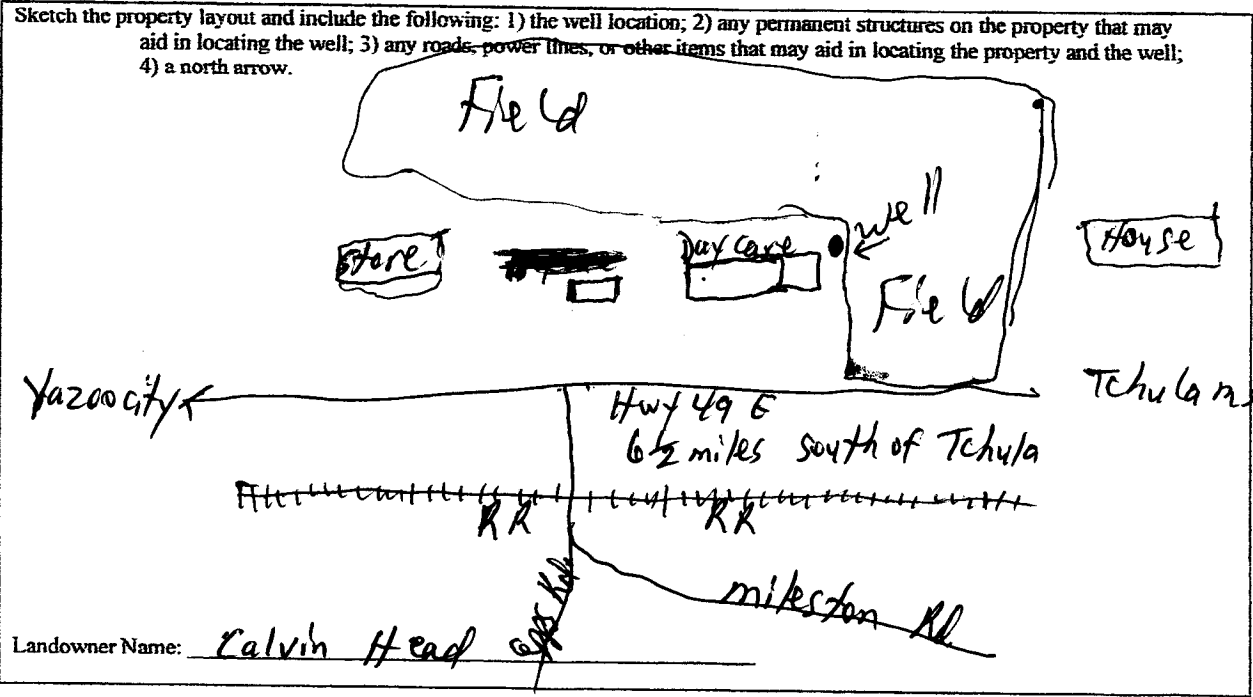 Sketch the property layout and include the following: 1) the well location; 2) any permanent structures on the property that may
aid in locating the well; 3) any roads, power lines, or other items that may aid in locating the property and the well;
4) a north arrow.
Field
well
Store
Day Care
House
Field
Yazoo city
Tchula ms
Hwy 49 E
6½ miles south of Tchula
RR
RR
mileston Rd
Landowner Name: Calvin Head